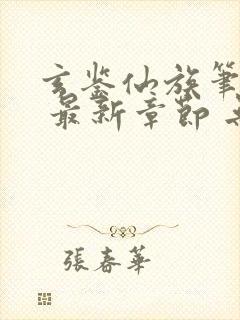 玄鉴仙族筆
最新章節
張春華